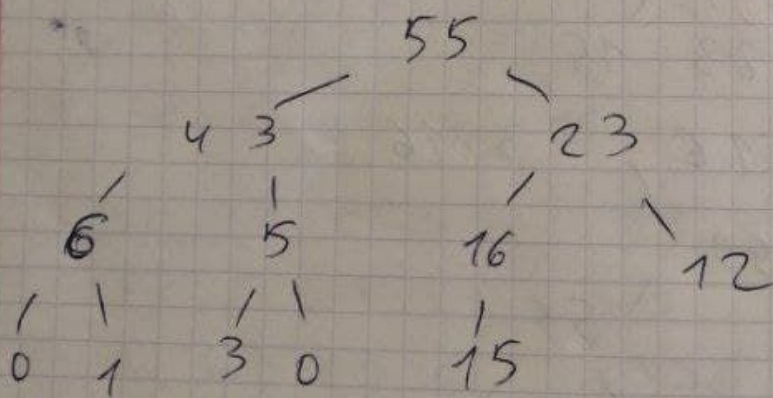 55
43 23
6 5 16 12
0 1 3 0 15